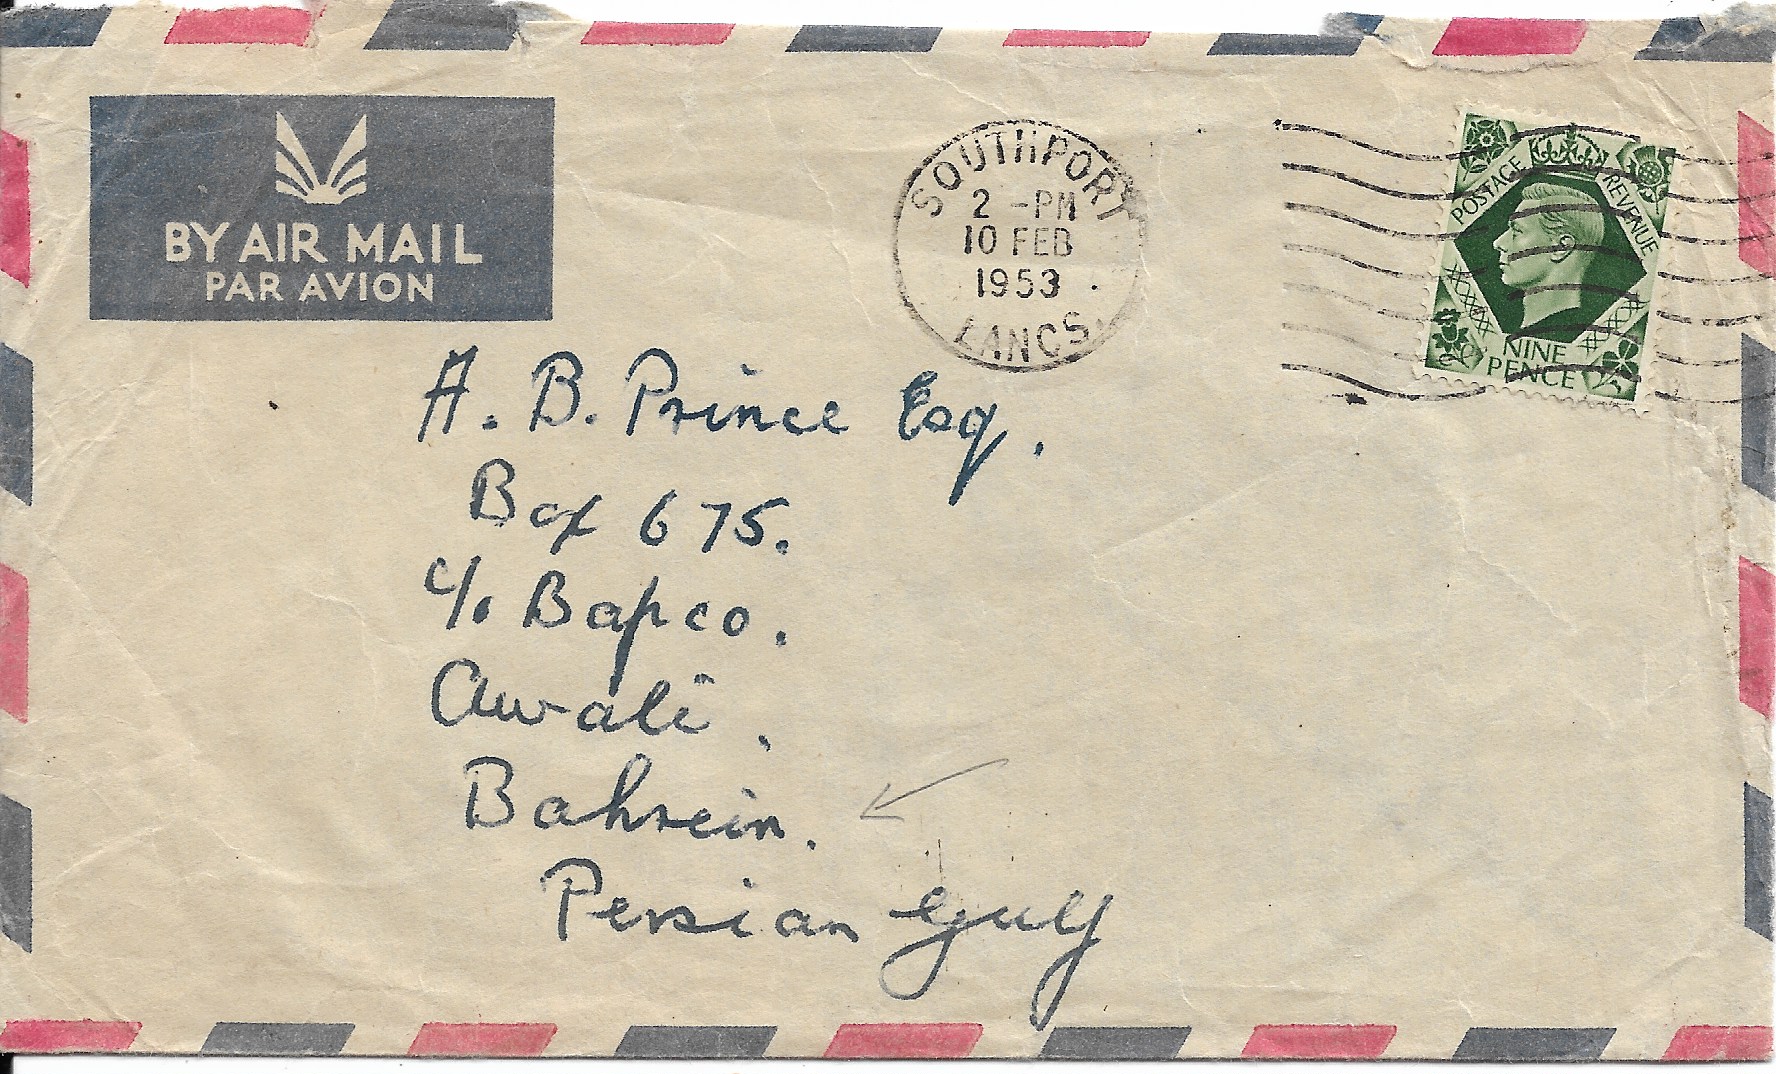 BY AIR MAIL
PAR AVION
SOUTHPORT
2 - PM
10 FEB
1953
LANCS.
POSTAGE REVENUE
9
NINE
PENCE
A. B. Prince Esq.
Box 675.
c/o Bapco.
Awali.
Bahrein.
Persian Gulf